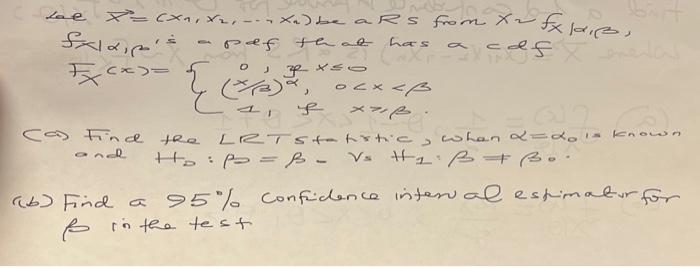 Let X⃗ = (X1, X2, ---, Xn) be a RS from X ~ fX|α,β,
fX|α,β is a pdf that has a cdf
FX(x) = { 0, if x≤0
(x/β)^α, 0<x<β
1, if x≥β.
(a) Find the LRT Statistic, when α=α0 is known
and H0 : β = β0 Vs H1 : β ≠ β0.
(b) Find a 95% Confidence interval estimator for
β in the test